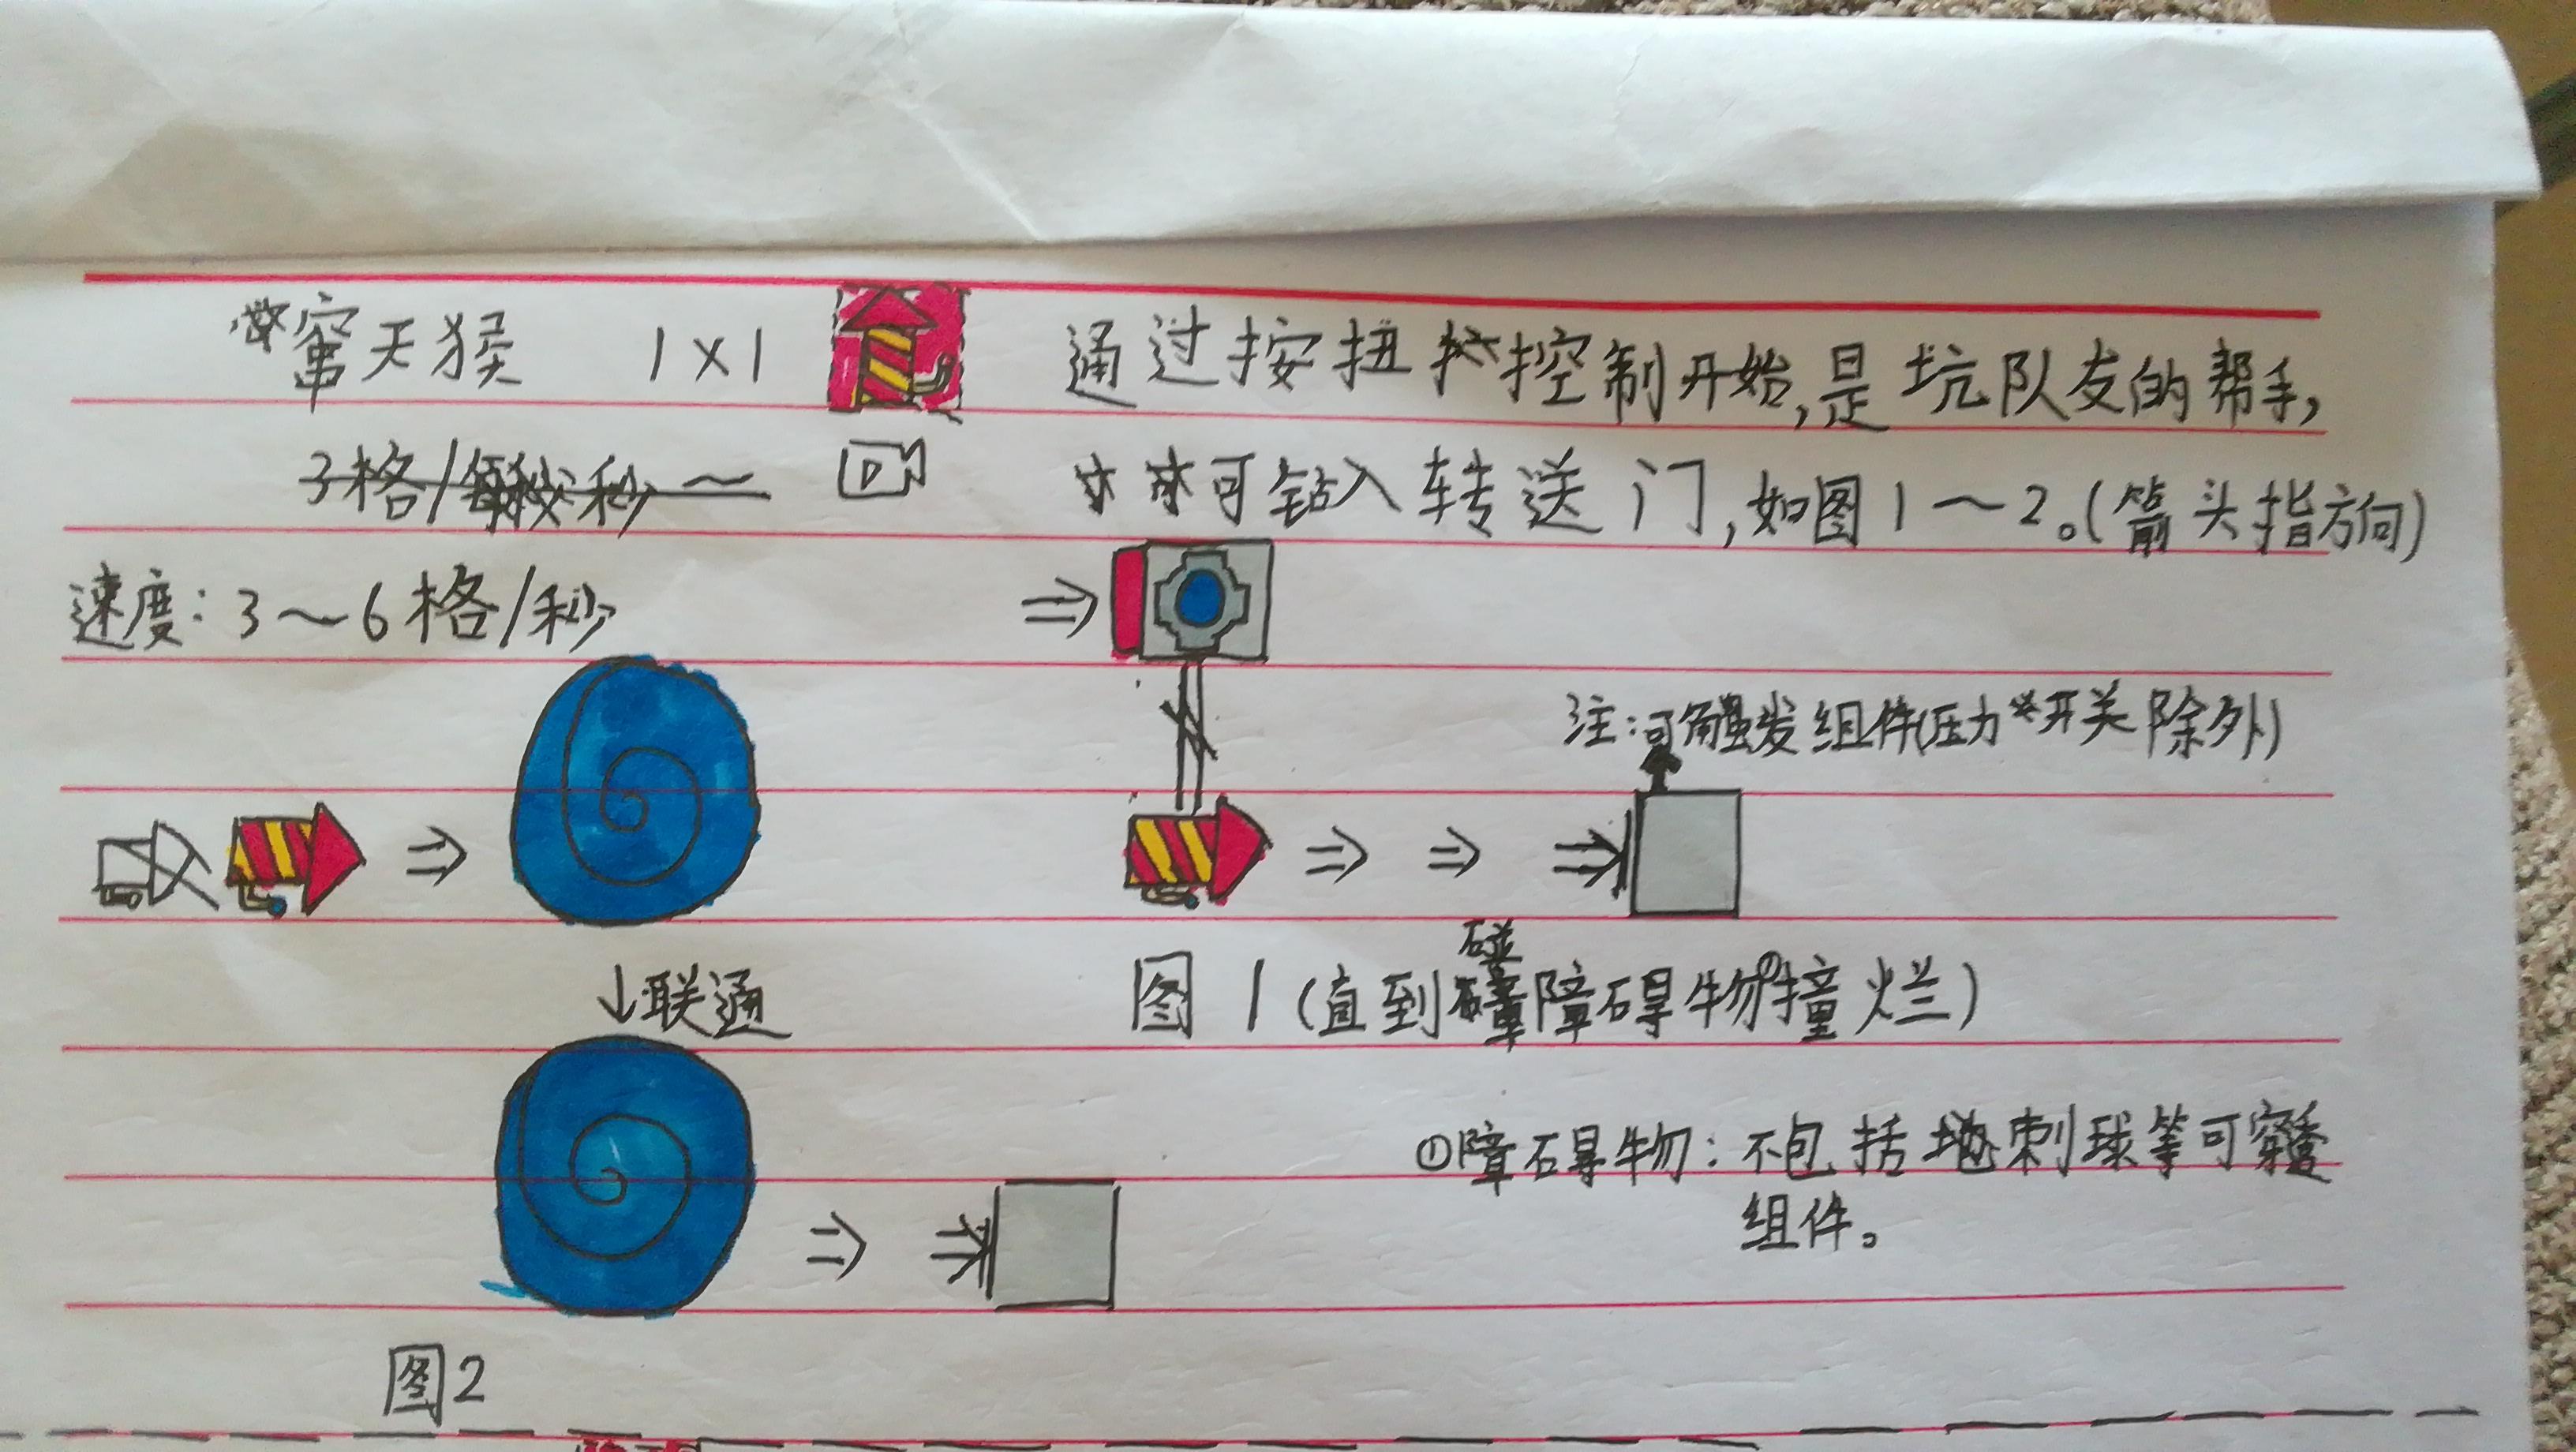 窜天猴 1×1 通过按扭控制开始,是坑队友的帮手,
3格/秒~ 可钻入转送门,如图1~2。(箭头指方向)
速度:3~6格/秒
注:可触发组件(压力开关除外)
↓联通
图1(直到碰障碍物①撞烂)
①障碍物:不包括地刺球等可穿
组件。
图2